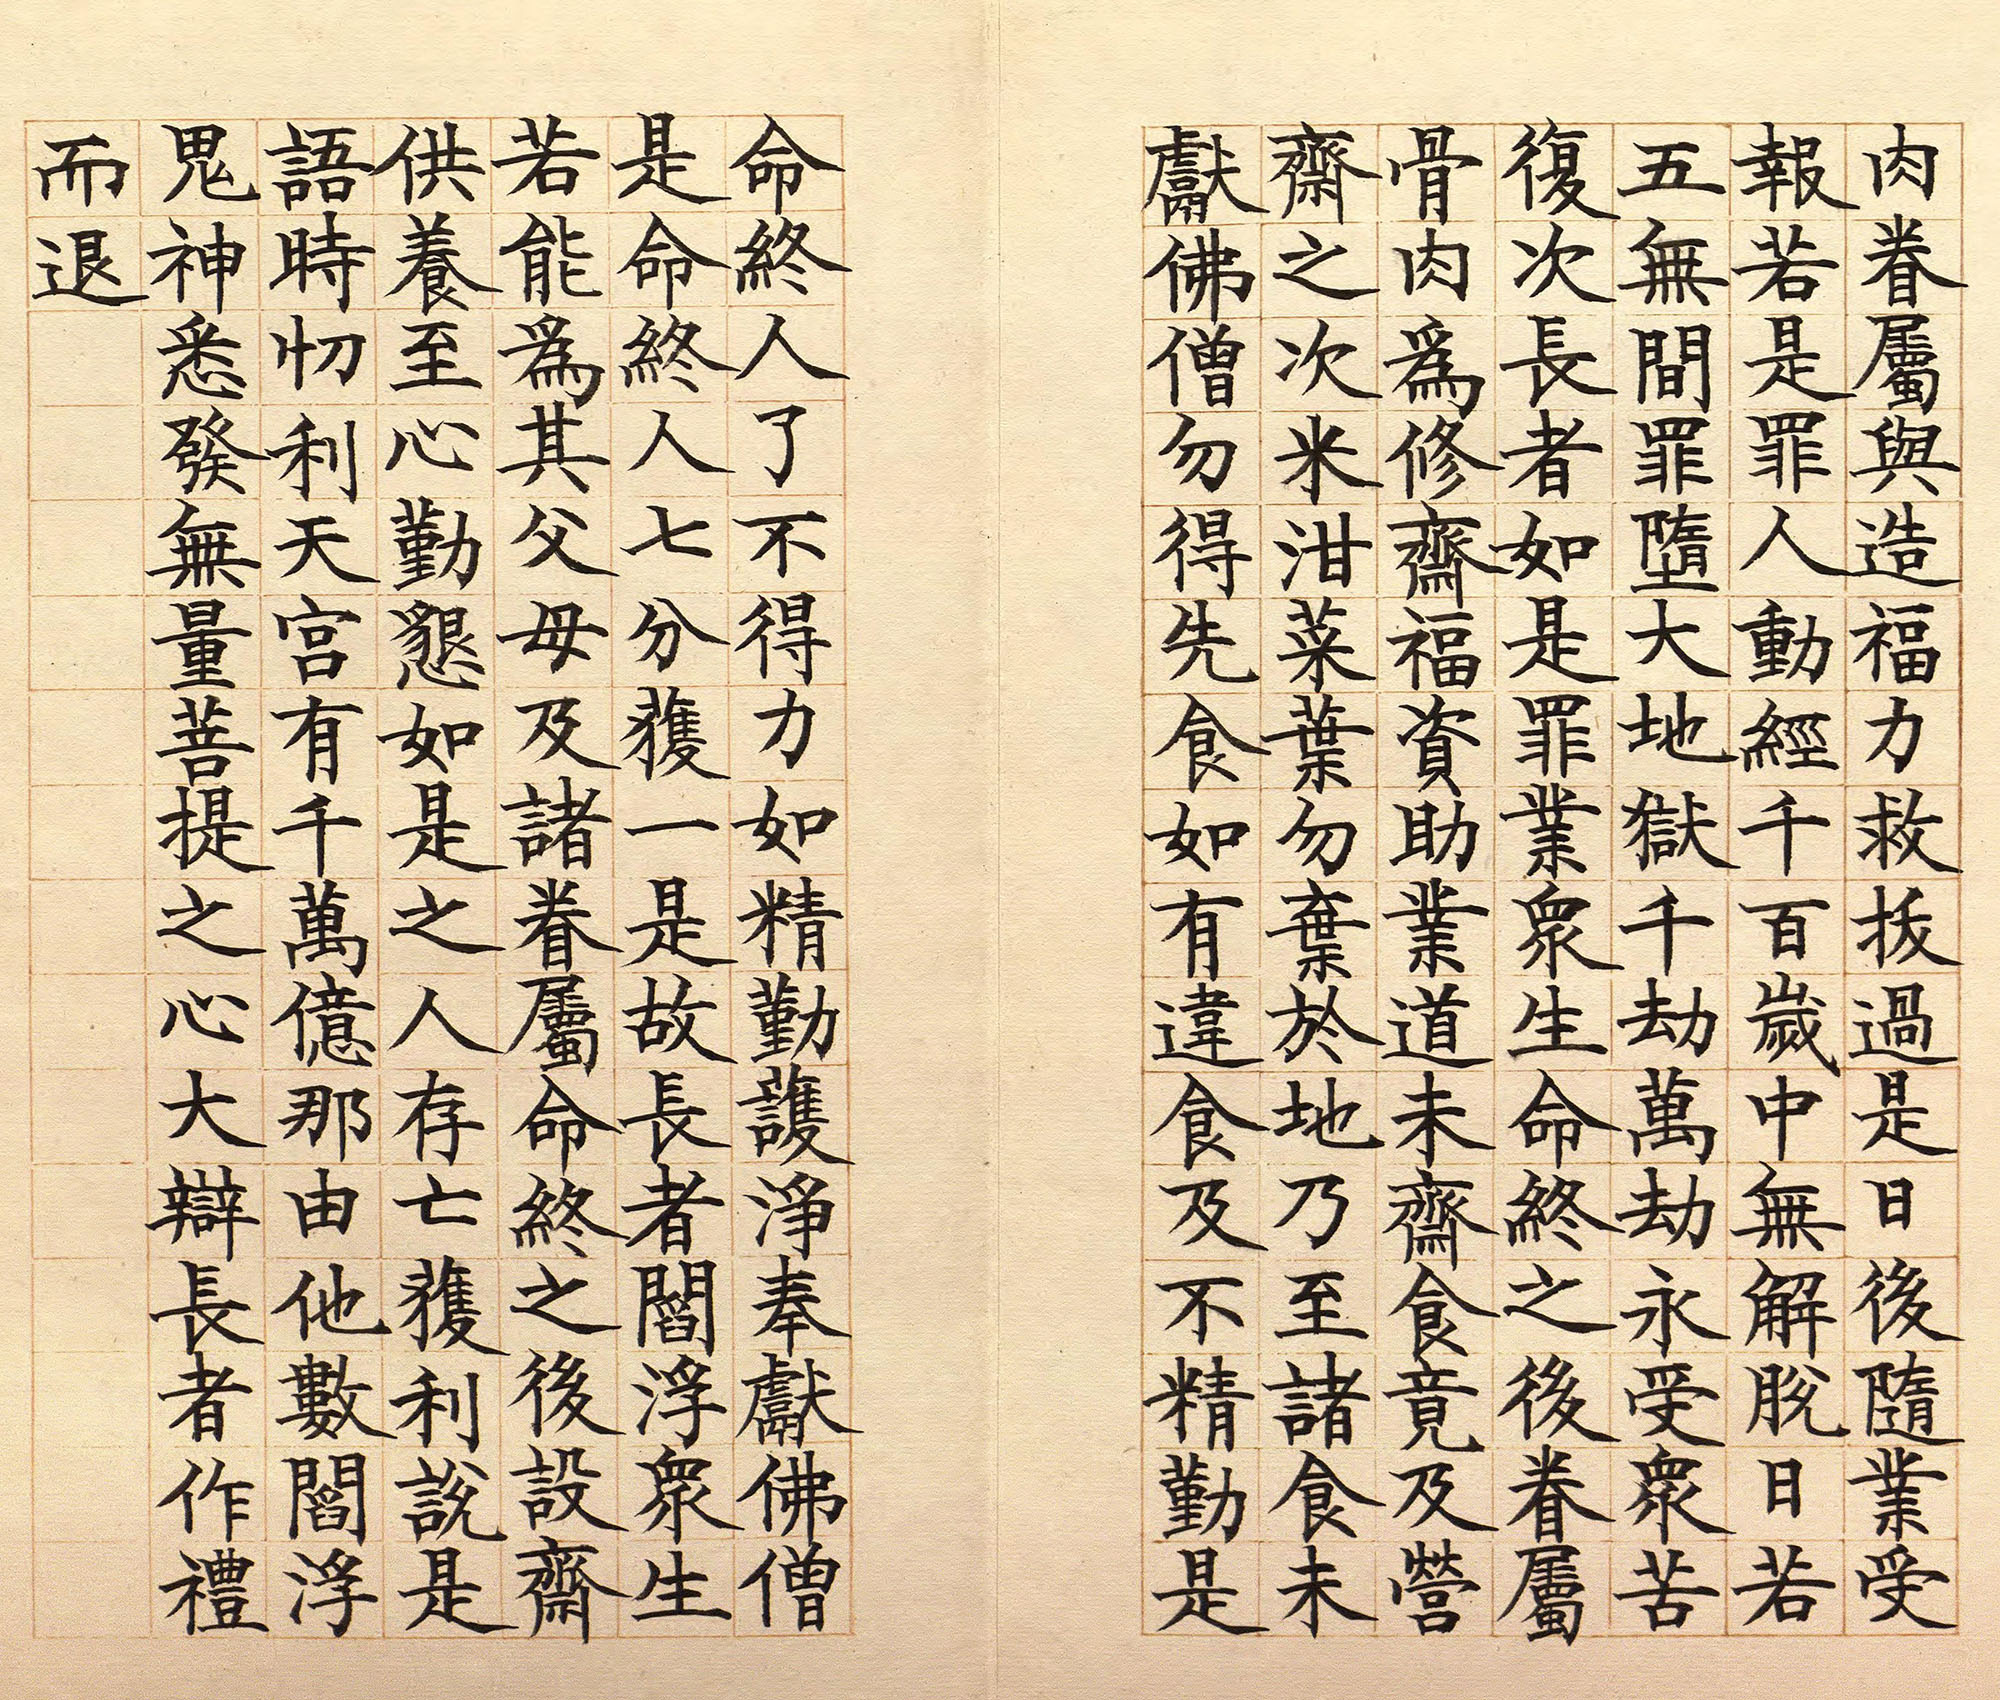 肉眷屬與造福力救拔過是日後隨業受
報若是罪人動經千百歲中無解脫日若
五無間罪墮大地獄千劫萬劫永受眾苦
復次長者如是罪業眾生命終之後眷屬
骨肉為修齋福資助業道未齋食竟及營
齋之次米泔菜葉勿棄於地乃至諸食未
獻佛僧勿得先食如有違食及不精勤是
命終人了不得力如精勤護淨奉獻佛僧
是命終人七分獲一是故長者閻浮眾生
若能為其父母及諸眷屬命終之後設齋
供養至心勤懇如是之人存亡獲利說是
語時忉利天宮有千萬億那由他數閻浮
鬼神悉發無量菩提之心大辯長者作禮
而退